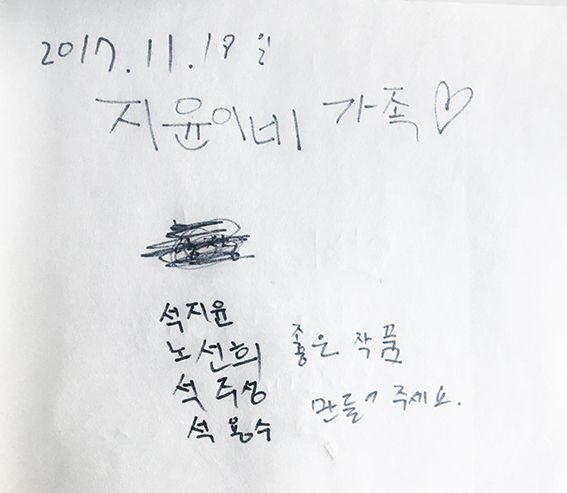 2017.11.19 일
지윤이네 가족♡
석지윤
노선희 좋은 작품
석주성 만들어 주세요.
석용수